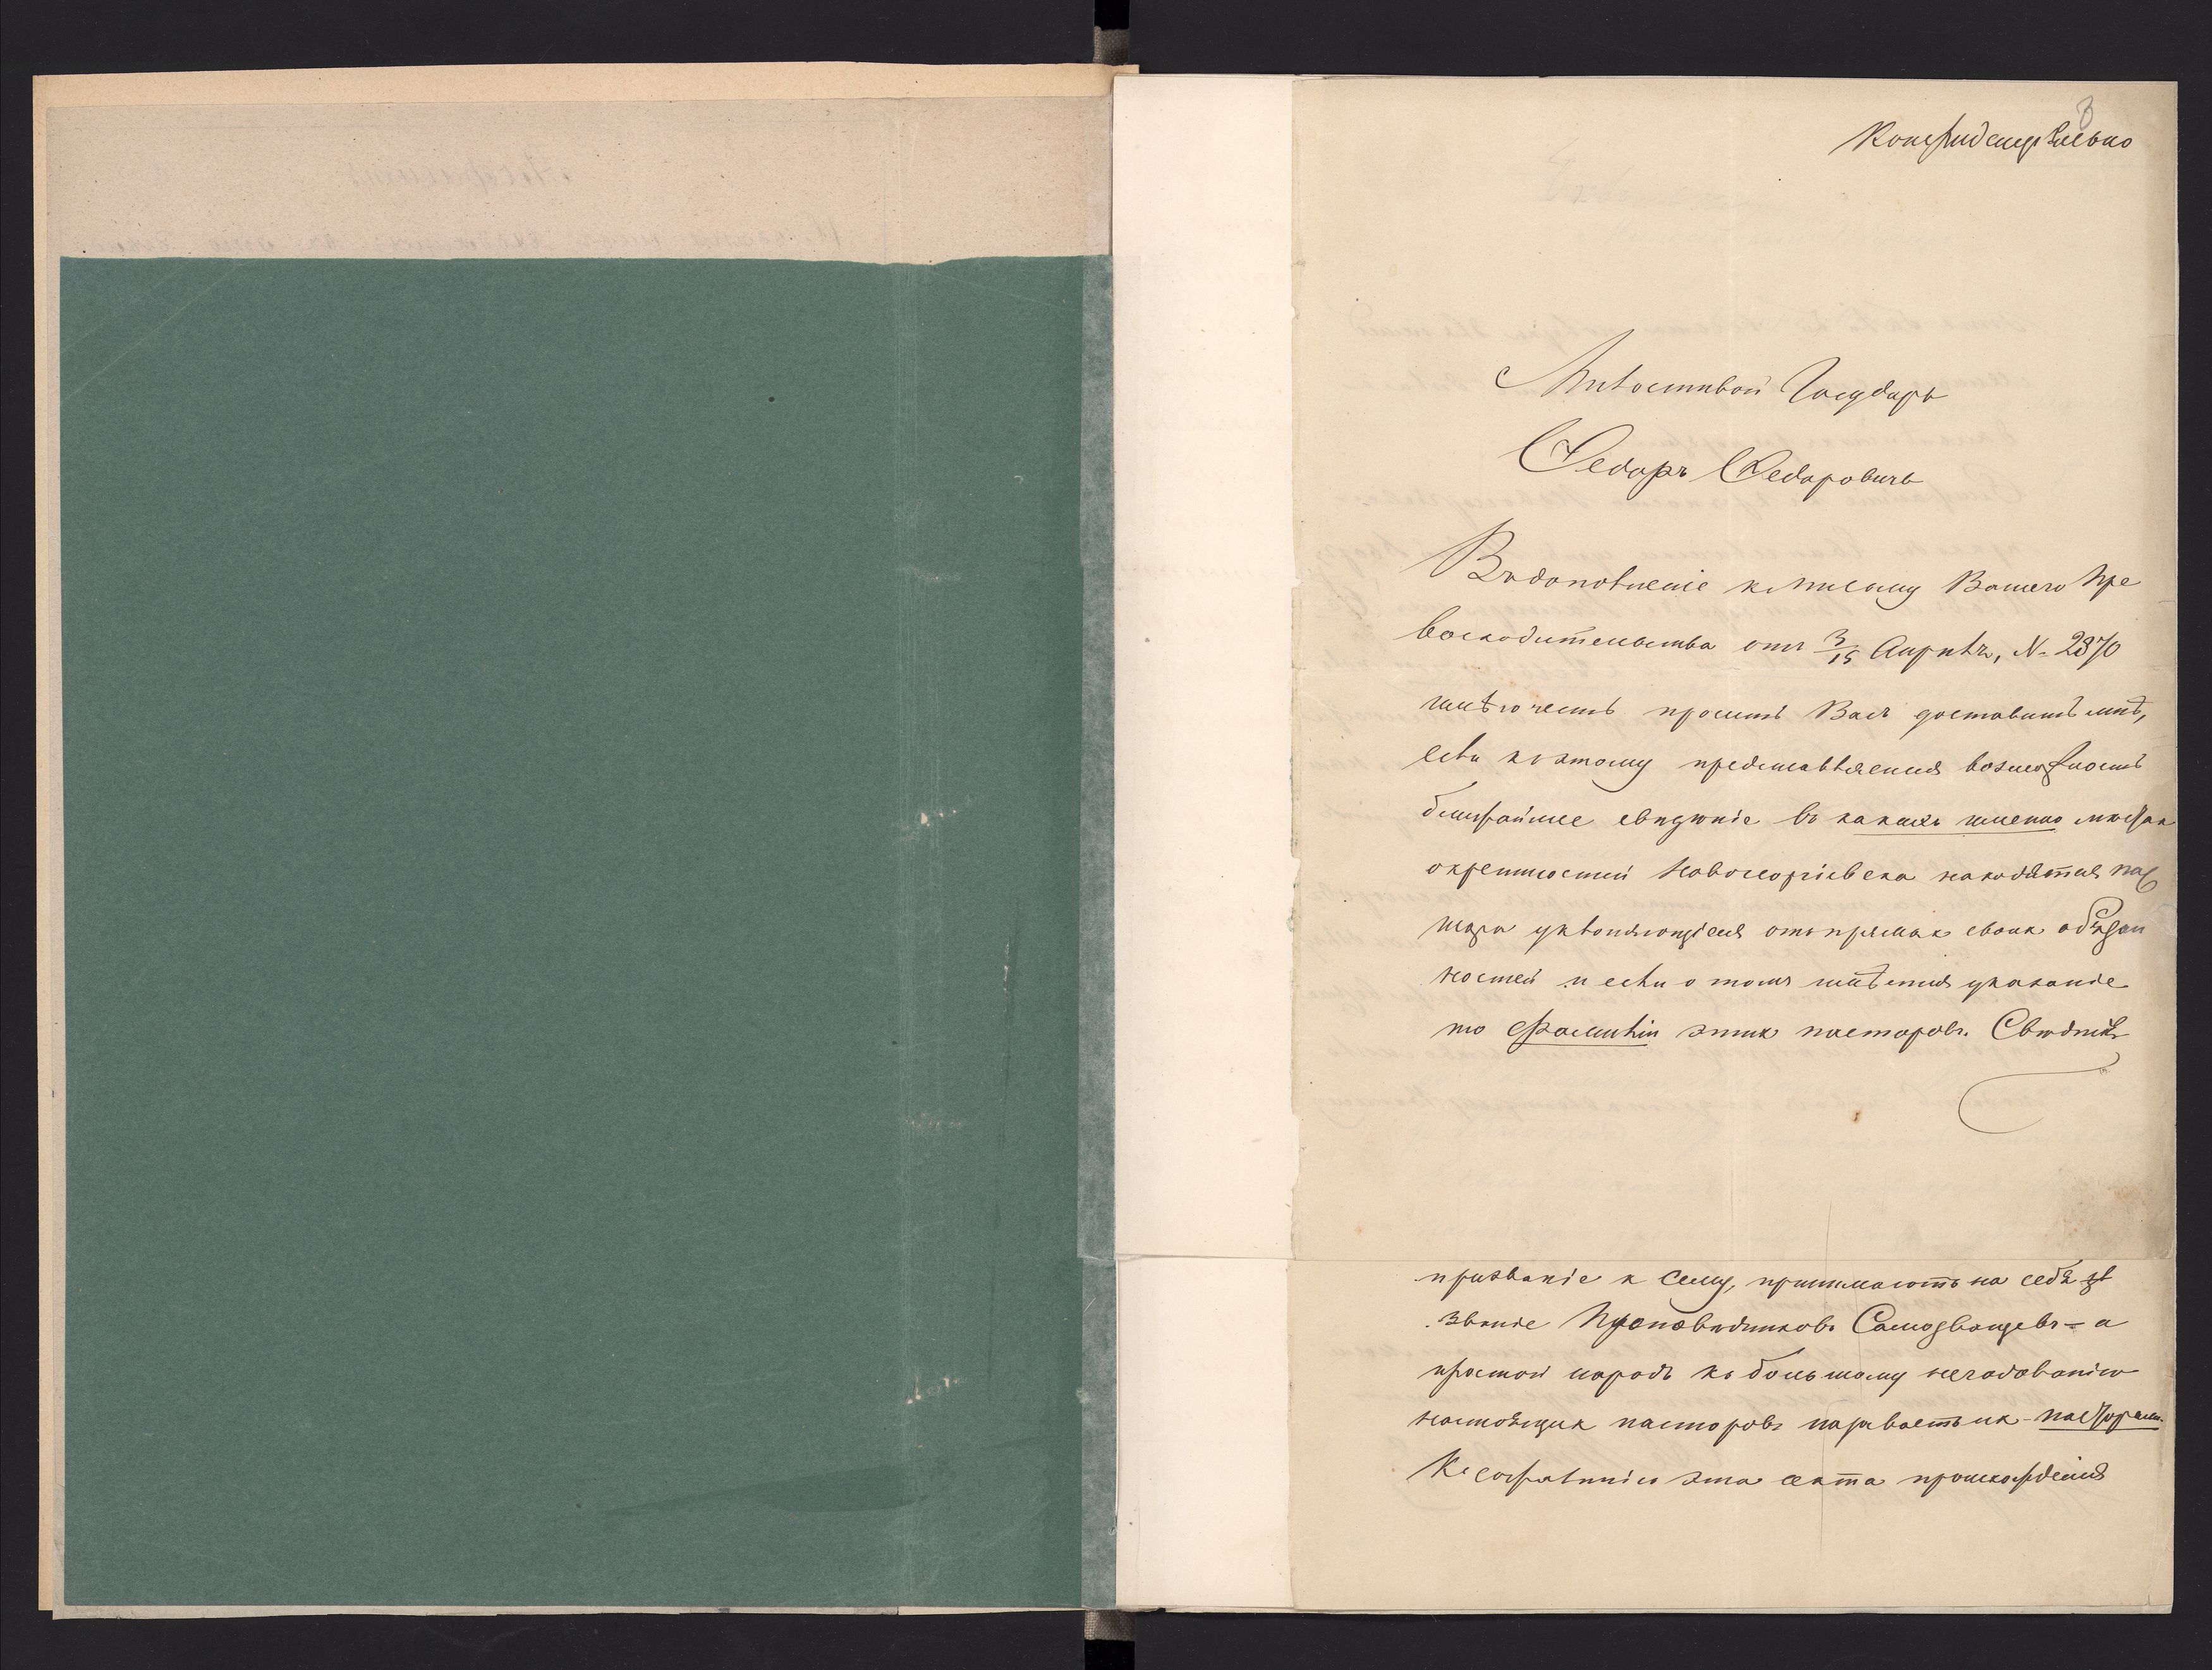 3
Конфиденціально
Милостивой Государь
Федоръ Федоровичъ
Въ дополненіе къ письму Вашего Пре
восходительства отъ 3/15 Апрѣля, № 2870
имѣю честь просить Васъ доставить мнѣ,
если къ этому представляется возможность
ближайшее свѣдѣніе въ какихъ именно мѣстах
окрестностей Новогеоргіевска находятся пас
тора уклоняющіеся отъ прямых своих обязан
ностей и если о томъ имѣется указаніе
то фамиліи этих пасторовъ.
призваніе к сему, принимаютъ на себя
званіе Проповѣдниковъ Самозванцевъ – а
простой народъ къ большому негодованію
настоящих пасторовъ называетъ их – пасторами.
Къ сожалѣнію эта секта происхожденія